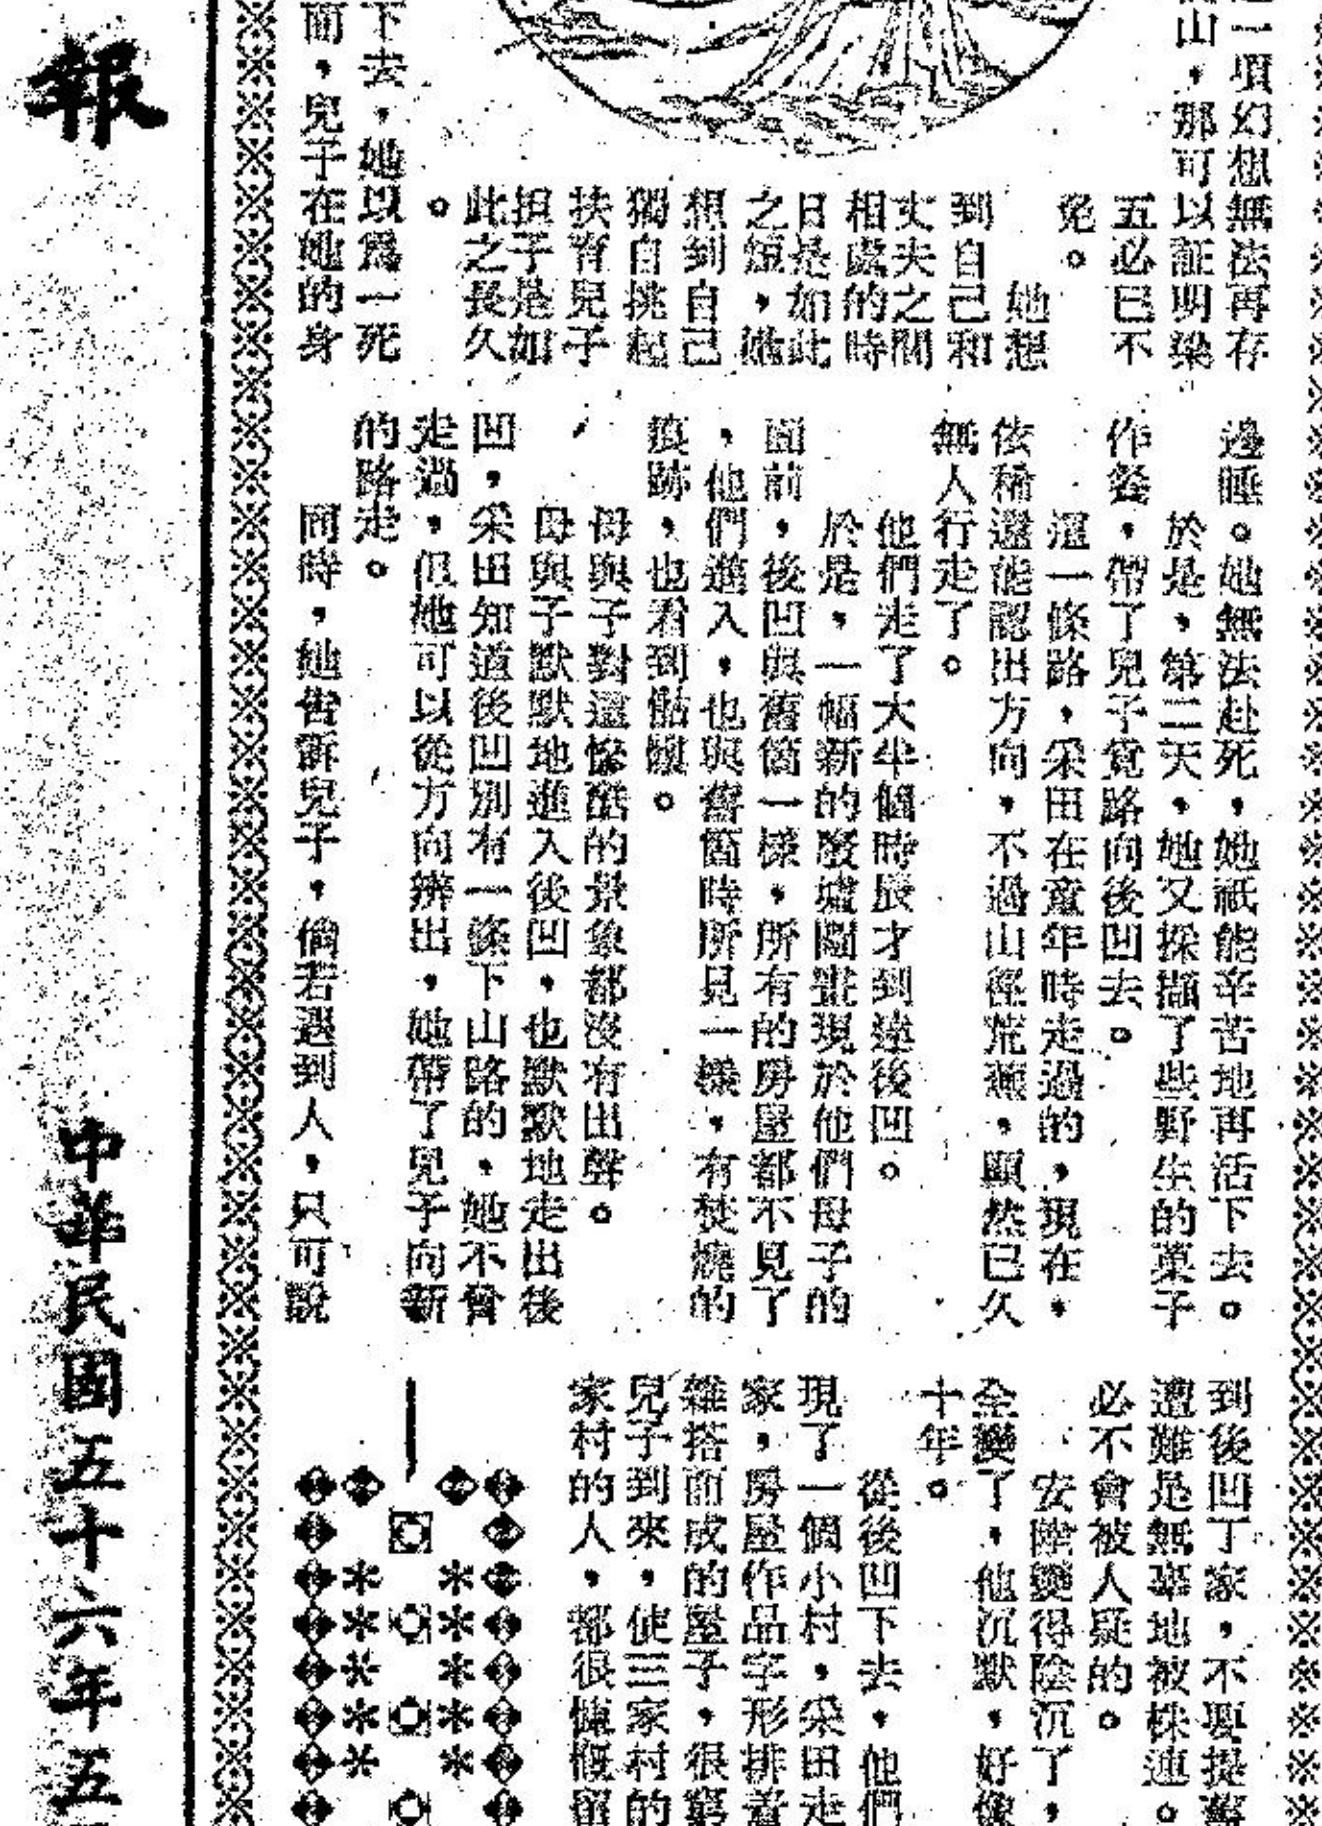 一項幻想無法再存
山，那可以証明梁
五必已不
免。
她想
到自己和
丈夫之間
相處的時
日是如此
之短，她
想到自己
獨自挑起
扶育兒子
担子是如
此之長久
。
下去，她以為一死
而，兒子在她的身
邊睡。她無法赴死，她祇能辛苦地再活下去。
於是，第二天，她又採擷了些野生的菓子
作餐，帶了兒子覓路向後凹去。
這一條路，采田在童年時走過的，現在，
依稀還能認出方向，不過山徑荒蕪，顯然已久
無人行走了。
他們走了大半個時辰才到達後凹。
於是，一幅新的廢墟圖畫現於他們母子的
面前，後凹與舊箇一樣，所有的房屋都不見了
，他們進入，也與舊箇時所見一樣，有焚燒的
痕跡，也看到骷髏。
母與子對這慘酷的景象都沒有出聲。
母與子默默地進入後凹，也默默地走出後
凹，采田知道後凹別有一條下山路的，她不曾
走過，但她可以從方向辨出，她帶了兒子向新
的路走。
同時，她告訴兒子，倘若遇到人，只可說
到後凹丁家，不要提舊
遭難是無辜地被株連。
必不會被人疑的。
安陰變得陰沉了，
全變了，他沉默，好像
十年。
從後凹下去，他們
現了一個小村，采田走
家，房屋作品字形排着
雜搭而成的屋子，很窮
兒子到來，使三家村的
家村的人，都很慷慨留
報
中華民國五十六年五